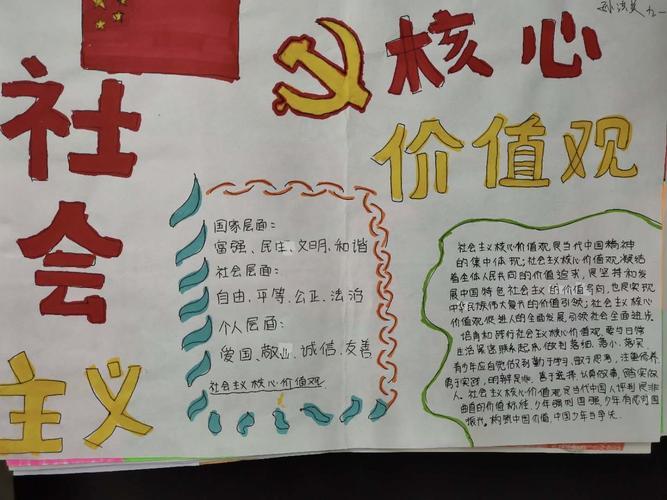 社会
主义
核心
价值观
九一
国家层面:
富强、民主、文明、和谐
社会层面:
自由、平等、公正、法治
个人层面:
爱国、敬业、诚信、友善
社会主义核心价值观
社会主义核心价值观是当代中国精神
的集中体现;社会主义核心价值观凝结
着全体人民共同的价值追求,是坚持和发
展中国特色社会主义的价值导向,也是实现
中华民族伟大复兴的价值引领;社会主义核心
价值观促进人的全面发展,引领社会全面进步
培育和践行社会主义核心价值观,要与日常
生活紧密联系起来,做到落细、落小、落实
青少年应自觉做到勤于学习,敢于思考,注重修养
勇于实践,明辨是非、善于选择,认真做事,踏实做
人。社会主义核心价值观是当代中国人评判是非
曲直的价值标准,少年强则国强,少年有志则国
振兴。构筑中国价值,中国少年当争先